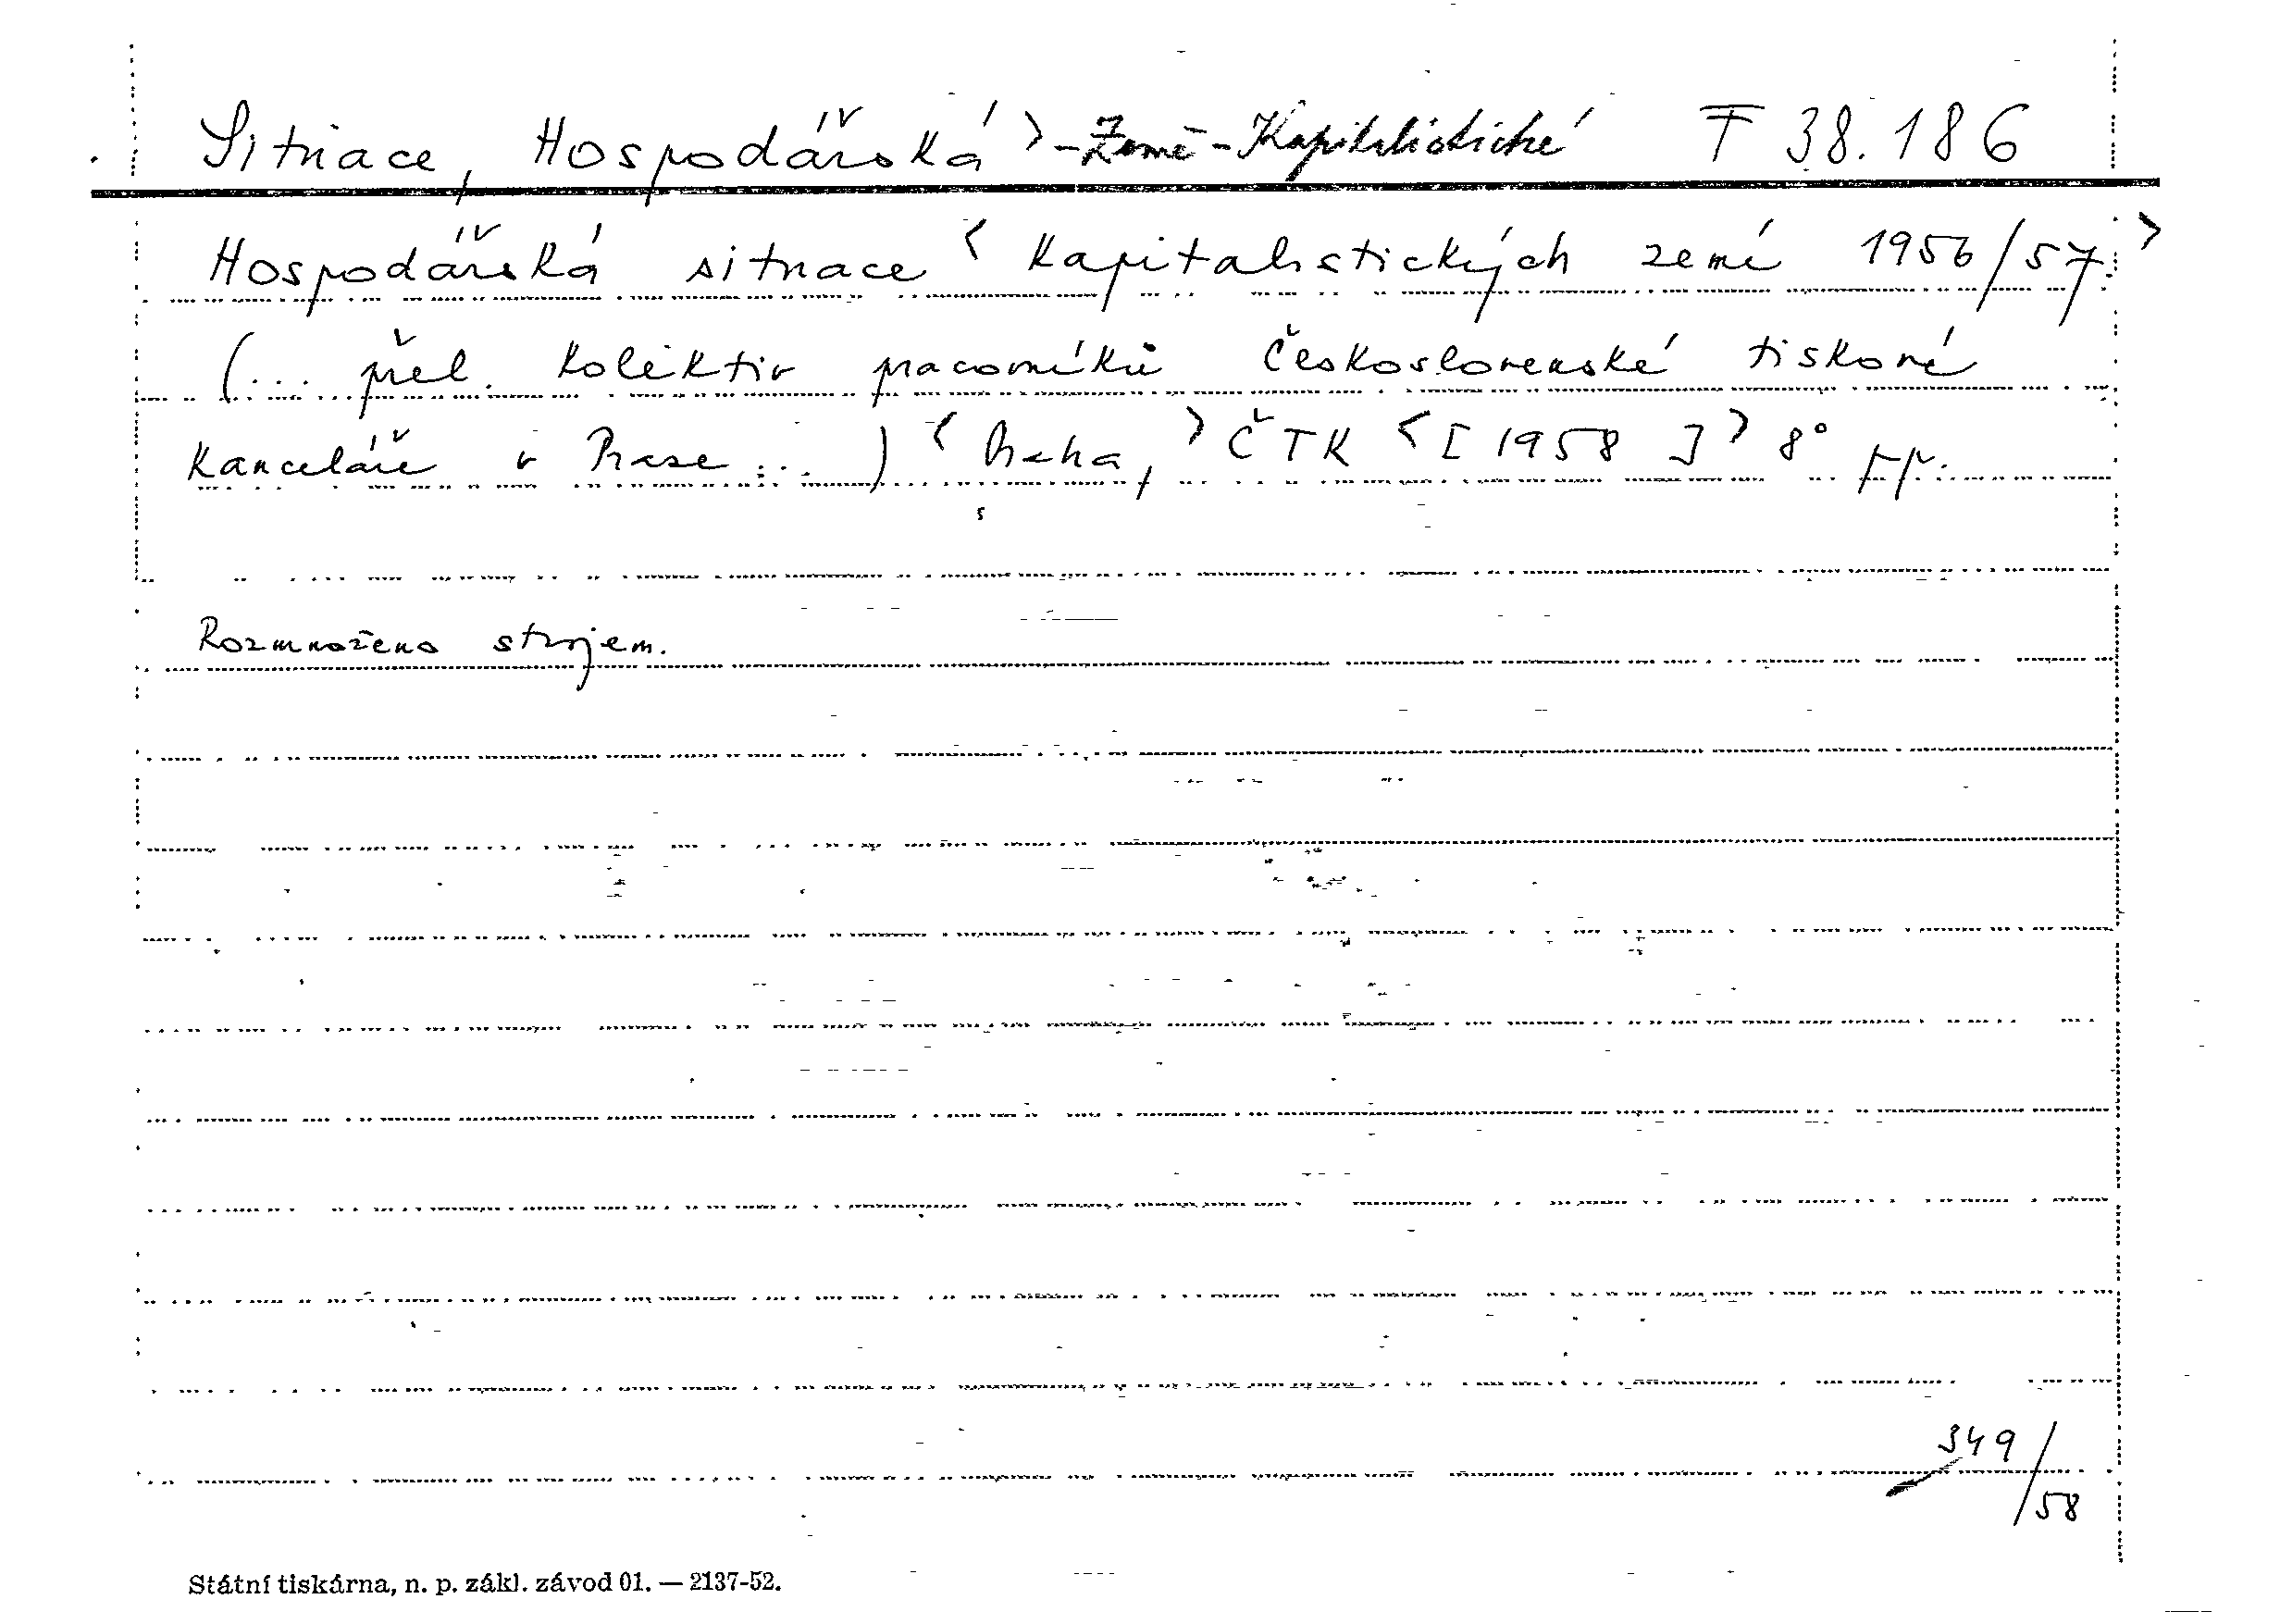 Situace, Hospodářská > - Země - Kapitalistické T 38.186
Hospodářská situace < kapitalistických zemí 1956/57. >
(... přel. kolektiv pracovníků Československé tiskové
kanceláře v Praze ...) < Praha, > ČTK < [1958] > 8°
Rozmnoženo strojem.
349/58
Státní tiskárna, n. p. zákl. závod 01. — 2137-52.